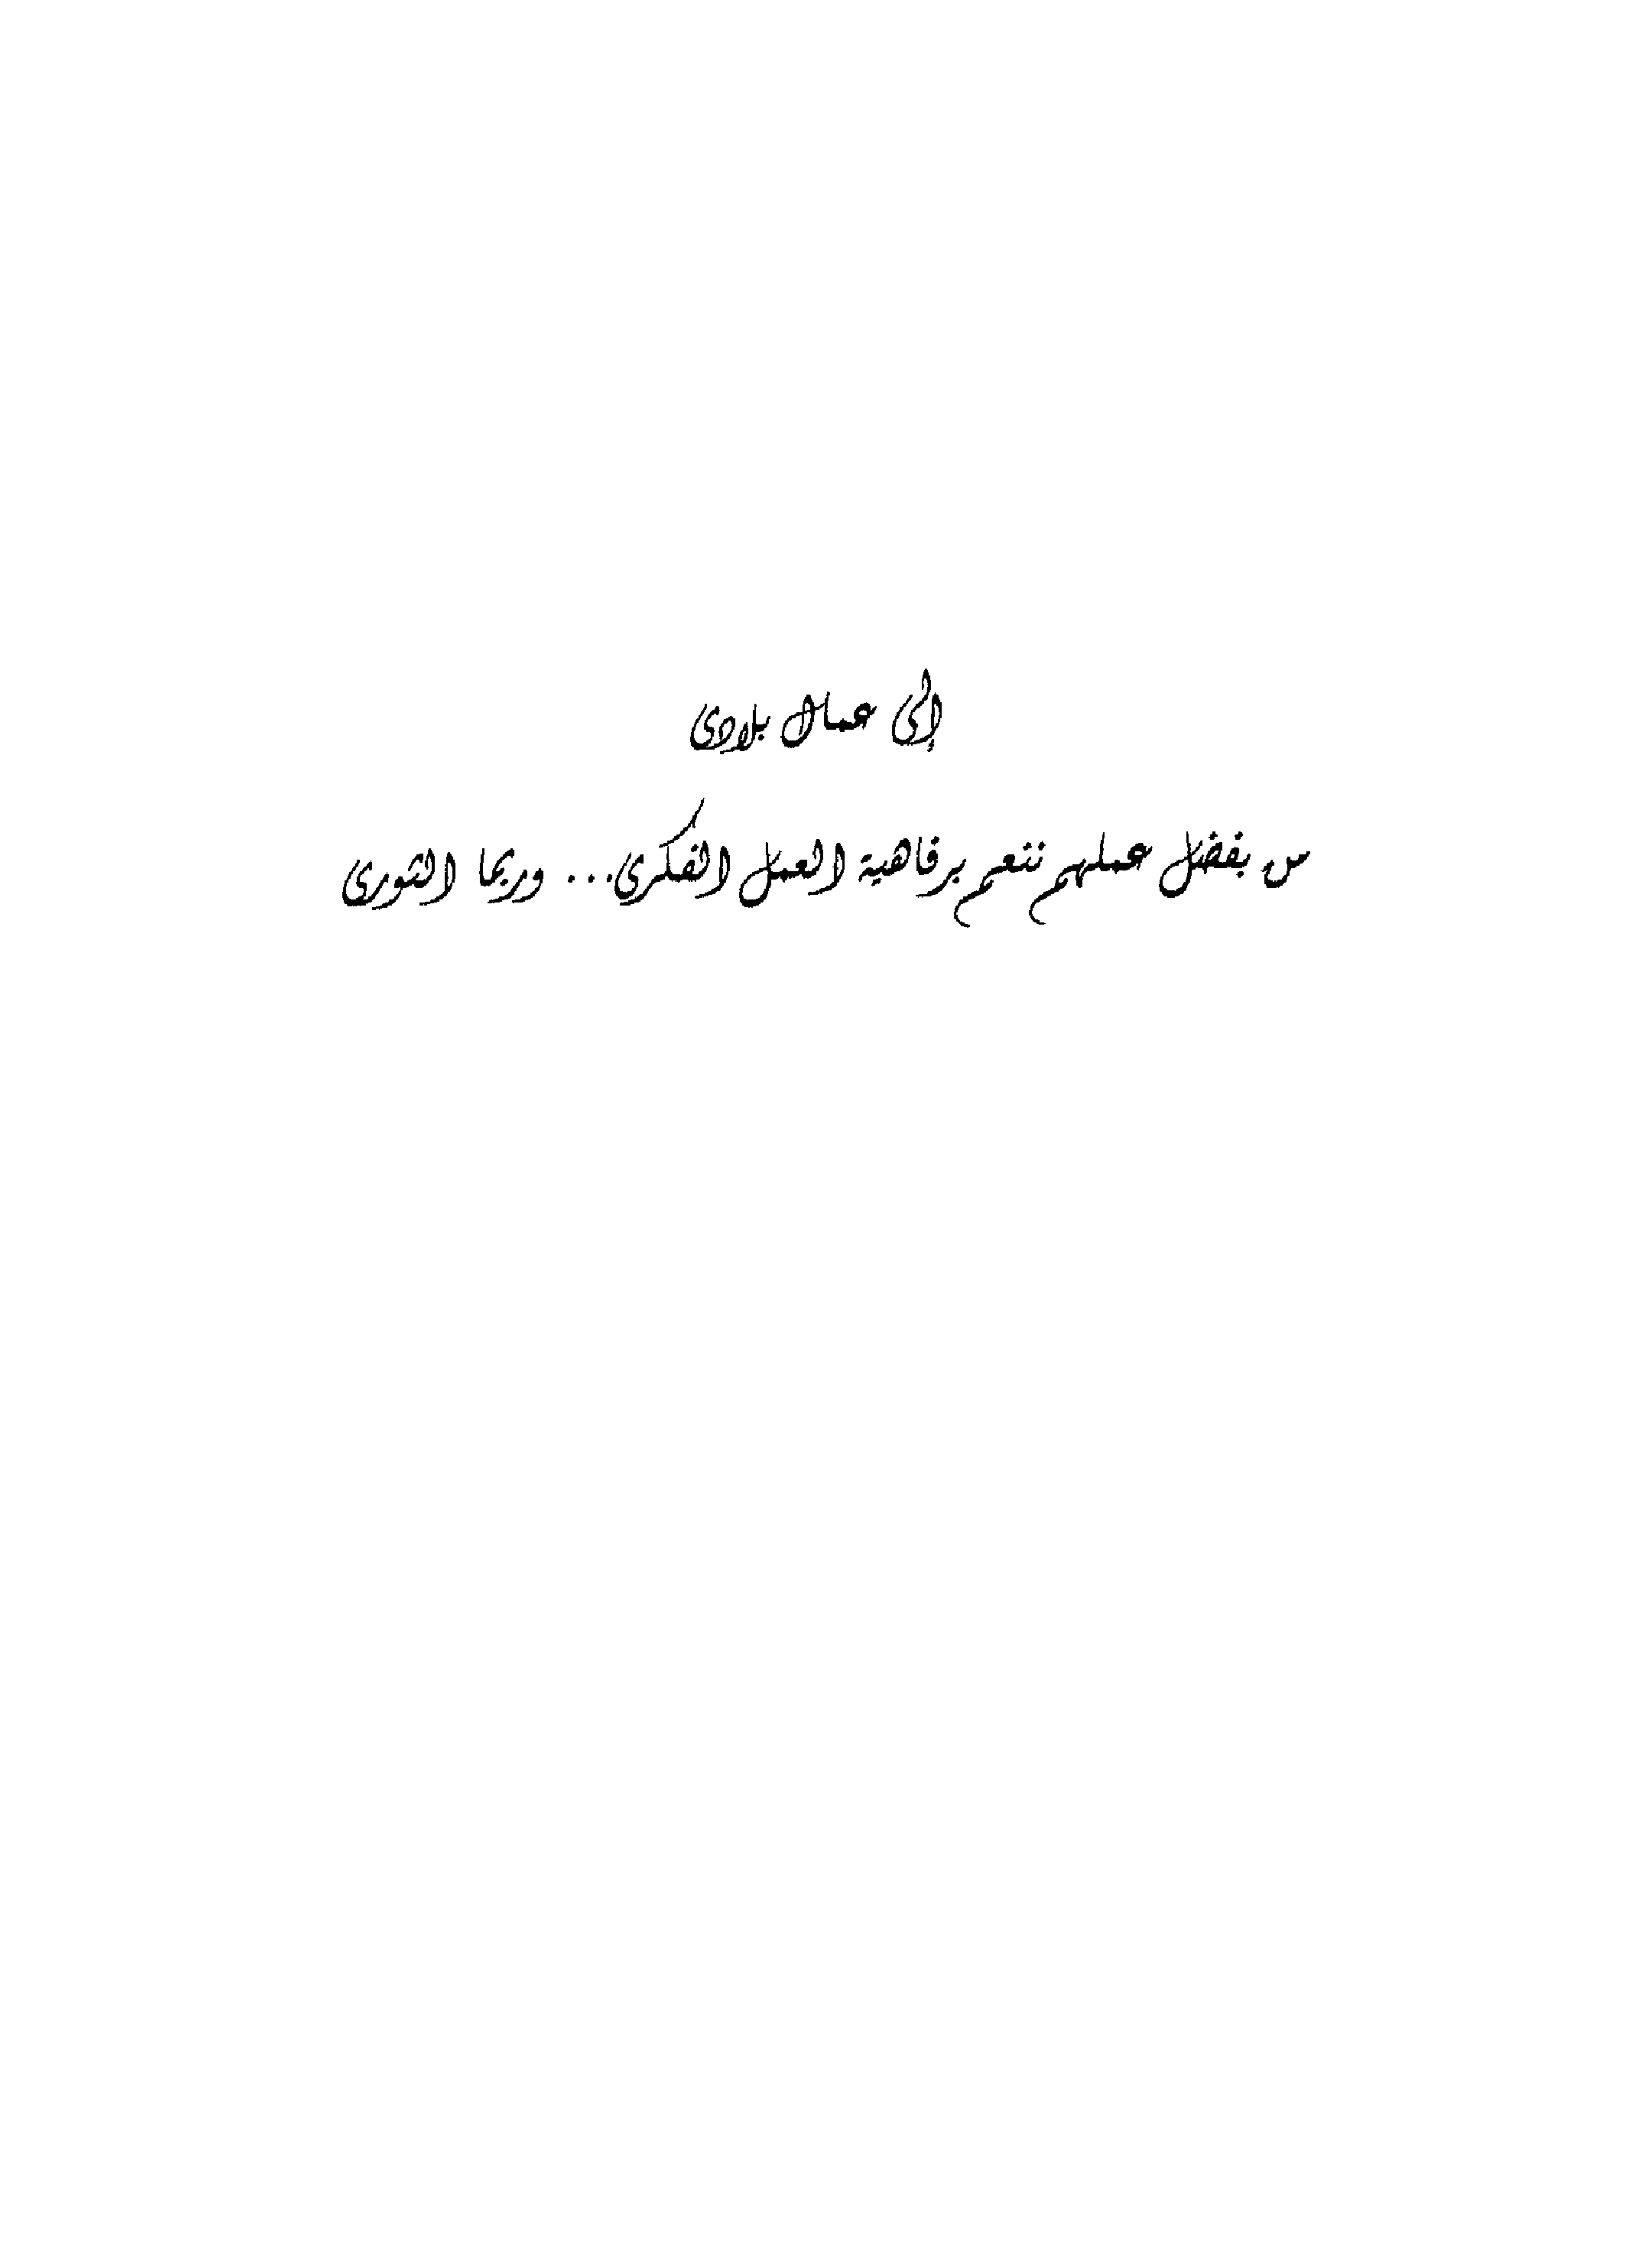 إلى عمال بلادى
من بفضل عملهم ننعم برفاهية العمل الفكرى... وربما الثورى